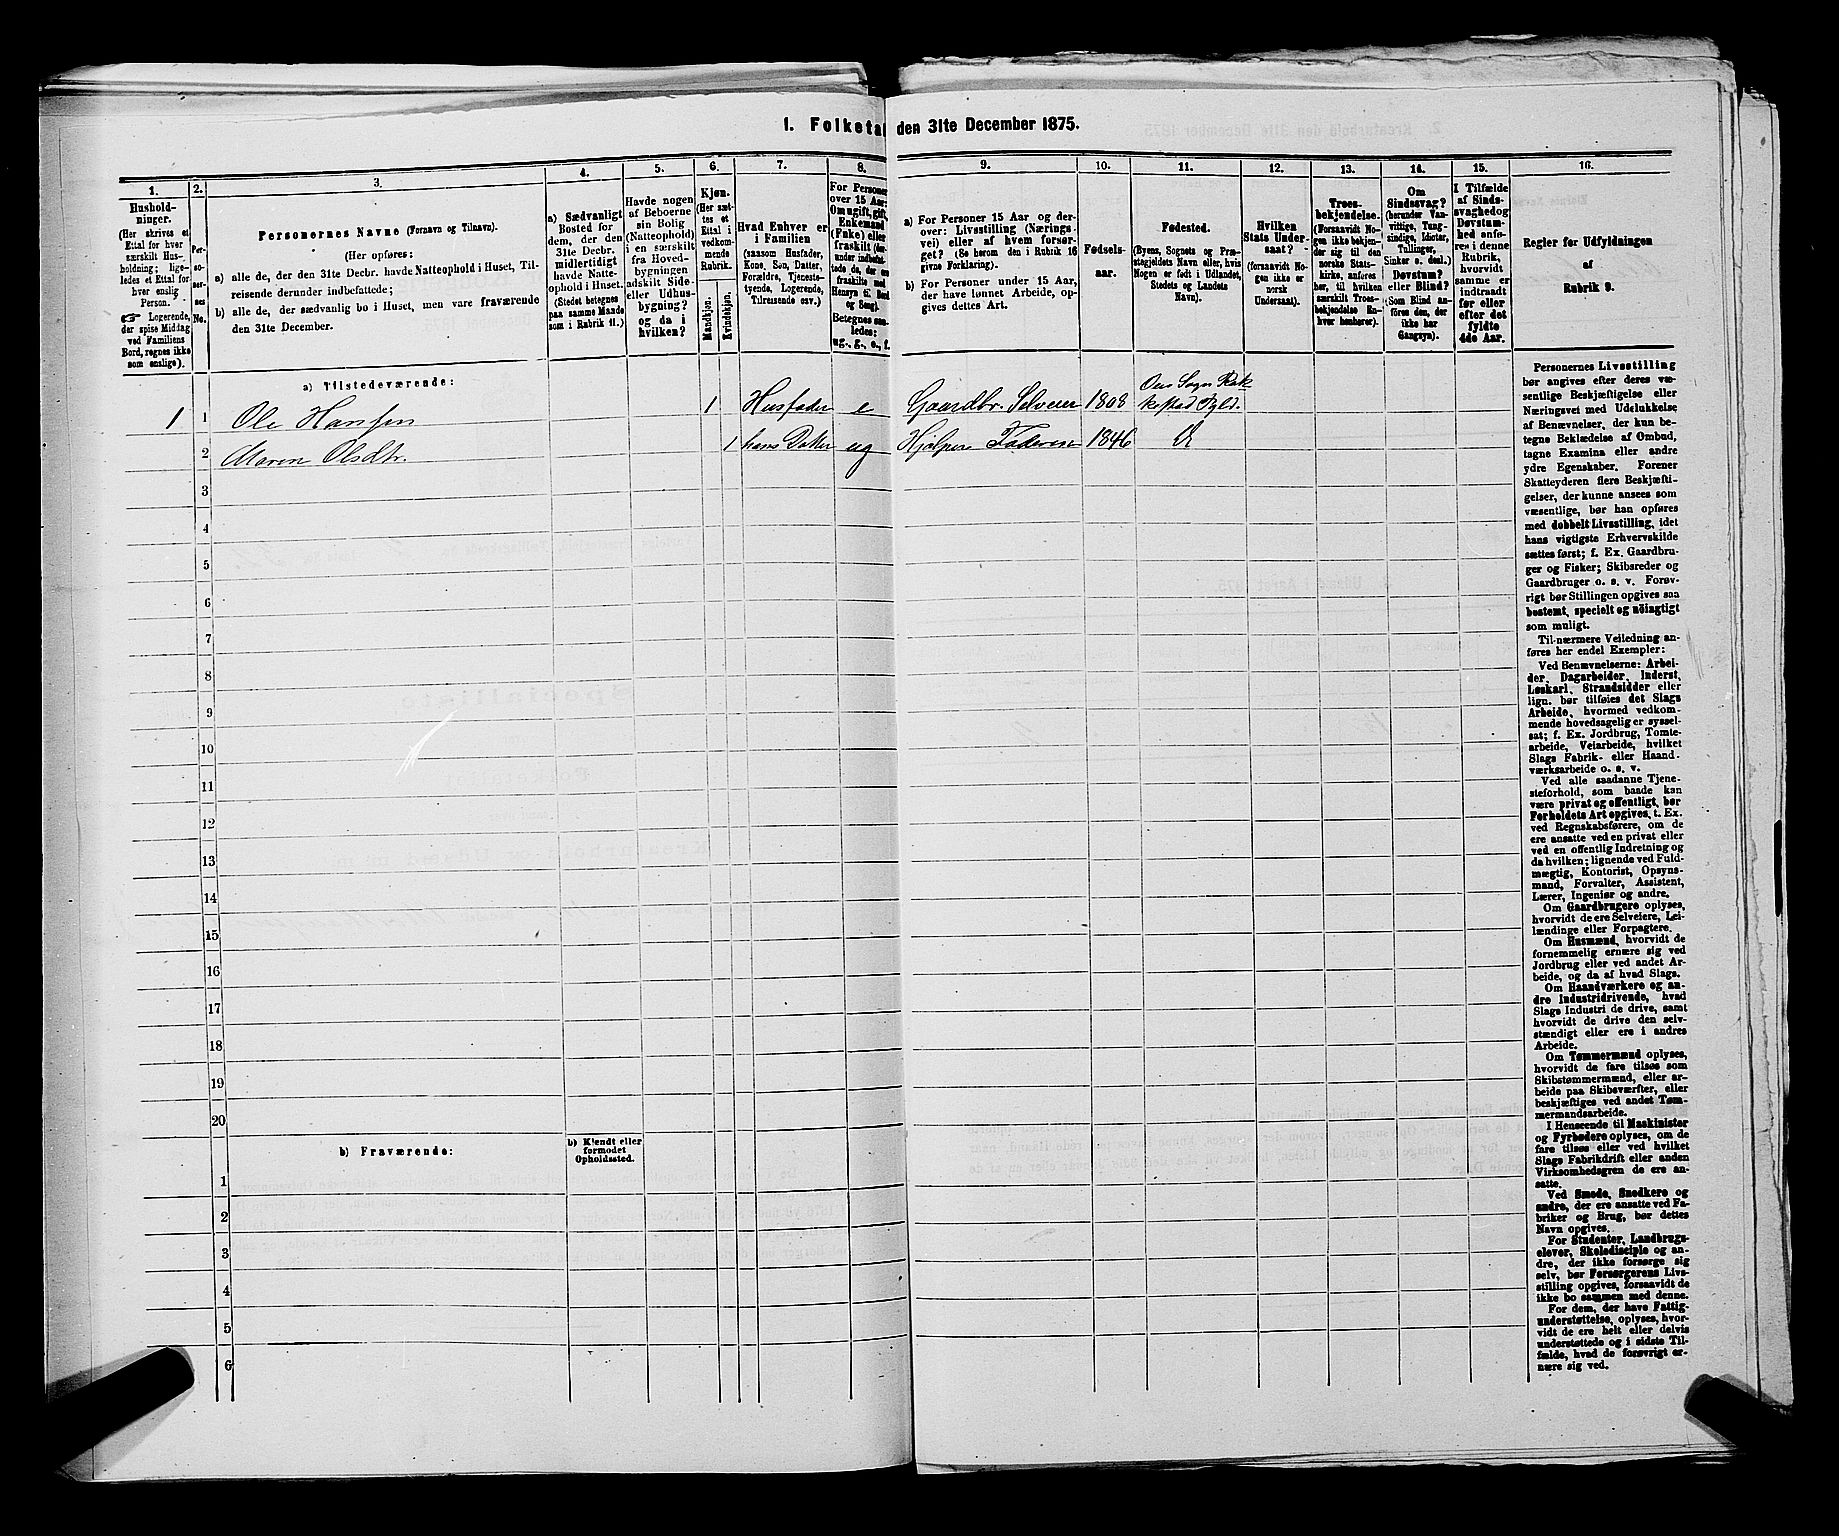 1. Folketal den 31te December 1875.
1.
Hushold-
ninger.
(Her skrives et
Ettal for hver
særskilt Hus-
holdning; lige-
ledes et Ettal for
hver enslig
Person.
☞ Logerende,
der spise Middag
ved Familiens
Bord, regnes ikke
som enslige).
2.
Per-
so-
ner-
nes
No.
3.
Personernes Navne (Fornavn og Tilnavn).
(Her opføres:
a) alle de, der den 31te Decbr. havde Natteophold i Huset, Til-
reisende derunder indbefattede;
b) alle de, der sædvanlig bo i Huset, men vare fraværende
den 31te December.
4.
a) Sædvanligt
Bosted for
dem, der den
31te Decbr.
midlertidigt
havde Natte-
ophold i Huset.
(Stedet betegnes
paa samme Maade
som i Rubrik 11.)
5.
Havde nogen
af Beboerne
sin Bolig
(Natteophold)
i en særskilt
fra Hoved-
bygningen
adskilt Side-
eller Udhus-
bygning?
og da i
hvilken?
6.
Kjøn.
(Her sæt-
tes et
Ettal i
vedkom-
mende
Rubrik.
Mandkjøn.
Kvindekjøn.
7.
Hvad Enhver er
i Familien
(saasom Husfader,
Kone, Søn, Datter,
Forældre, Tjeneste-
tyende, Logerende,
Tilreisende osv.)
8.
For Personer
over 15 Aar:
Om ugift, gift,
Enkemand
(Enke) eller
fraskilt
Betegnes saa-
ledes:
ug., g., e., f.
9.
a) For Personer 15 Aar og der-
over: Livsstilling (Nærings-
vei) eller af hvem forsør-
get? (Se herom den i Rubrik 16
givne Forklaring).
b) For Personer under 15 Aar,
der have lønnet Arbeide, op-
gives dettes Art.
10.
Fødsels-
aar.
11.
Fødested.
(Byens, Sognets og Præ-
stegjeldets Navn eller, hvis
Nogen er født i Udlandet,
Stedets og Landets
Navn).
12.
Hvilken
Stats Under-
saat?
(forsaavidt No-
gen ikke er
norsk
Undersaat).
13.
Troes-
bekjendelse.
(Forsaavidt No-
gen ikke bekjen-
der sig til den
norske Stats-
kirke, anføres
her, til hvilken
særskilt Troes-
bekjendelse En-
hver henhører).
14.
Om
Sindssvag?
(herunder Van-
vittige, Tung-
sindige, Idioter,
Tullinger,
Sinker o. desl.)
Døvstum?
eller Blind?
(Som Blind an-
føres den, der
ikke har
Gangsyn).
15.
I Tilfælde
af Sinds-
svaghed og
Døvstum-
hed anfø-
res i denne
Rubrik,
hvorvidt
samme er
indtraadt
før eller
efter det
fyldte
4de Aar.
16.
Regler for Udfyldningen
af
Rubrik 9.
a) Tilstedeværende:
1 1 Ole Hansen 1 Husfader e Gaardbr. Selveier 1808 Ous Sogn Rak-
kestad Pgld.
2 Maren Olsdtr. 1 hans Datter ug Hjælper Faderen 1846
3
4
5
6
7
8
9
10
11
12
13
14
15
16
17
18
19
20
b) Fraværende:
b) Kjendt eller
formodet
Opholdssted.
1
2
3
4
5
6
Personernes Livsstilling
bør angives efter deres væ-
sentlige Beskjæftigelse eller
Næringsvei med Udelukkelse
af Benævnelser, der kun be-
tegne Beklædelse af Ombud,
tagne Examina eller andre
ydre Egenskaber. Forener
Skatteyderen flere Beskjæfti-
gelser, der kunne ansees som
væsentlige, bør han opføres
med dobbelt Livsstilling, idet
hans vigtigste Erhvervskilde
sættes først; f. Ex. Gaardbru-
ger og Fisker; Skibsreder og
Gaardbruger o. s. v. Forøv-
rigt bør Stillingen opgives saa
bestemt, specielt og nöiagtigt
som muligt.
Til nærmere Veiledning an-
føres her endel Exempler:
Ved Benævnelserne: Arbei-
der, Dagarbeider, Inderst,
Løskarl, Strandsidder eller
lign. bør tilføies det Slags
Arbeide, hvormed vedkom-
mende hovedsagelig er syssel-
sat; f. Ex. Jordbrug, Tomte-
arbeide, Veiarbeide, hvilket
Slags Fabrik- eller Haand-
værksarbeide o. s. v.
Ved alle saadanne Tjene-
steforhold, som baade kan
være privat og offentligt, bør
Forholdets Art opgives, t. Ex.
ved Regnskabsførere, om de
ere ansatte ved en privat eller
ved en offentlig Indretning og
da hvilken; lignende ved Fuld-
mægtig, Kontorist, Opsyns-
mand, Forvalter, Assistent,
Lærer, Ingeniør og andre.
Om Gaardbrugere oplyses,
hvorvidt de ere Selveiere, Lei-
lændinge eller Forpagtere.
Om Husmænd, hvorvidt de
fornemmelig ernære sig ved
Jordbrug eller ved andet Ar-
beide, og da af hvad Slags.
Om Haandværkere og an-
dre Industridrivende, hvad
Slags Industri de drive, samt
hvorvidt de drive den selv-
stændigt eller ere i andres
Arbeide.
Om Tømmermænd oplyses,
hvorvidt de fare tilsøs som
Skibstømmermænd, eller ar-
beide paa Skibsværfter, eller
beskjæftiges ved andet Tøm-
mermandsarbeide.
I Henseende til Maskinister
og Fyrbødere oplyses, om de
fare tilsøs eller ved hvilket
Slags Fabrikdrift eller anden
Virksomhedsgren de ere an-
satte.
Ved Smede, Snedkere og
andre, der ere ansatte ved Fa-
briker og Brug, bør dettes
Navn opgives.
For Studenter, Landbrugs-
elever, Skoledisciple og an-
dre, der ikke forsørge sig
selv, bør Forsørgerens Livs-
stilling opgives, forsaavidt de
ikke bo sammen med denne.
For dem, der have Fattig-
understøttelse, oplyses, hvor-
vidt de ere helt eller delvis
understøttede og i sidste Til-
fælde, hvad de forøvrigt er-
nære sig ved.